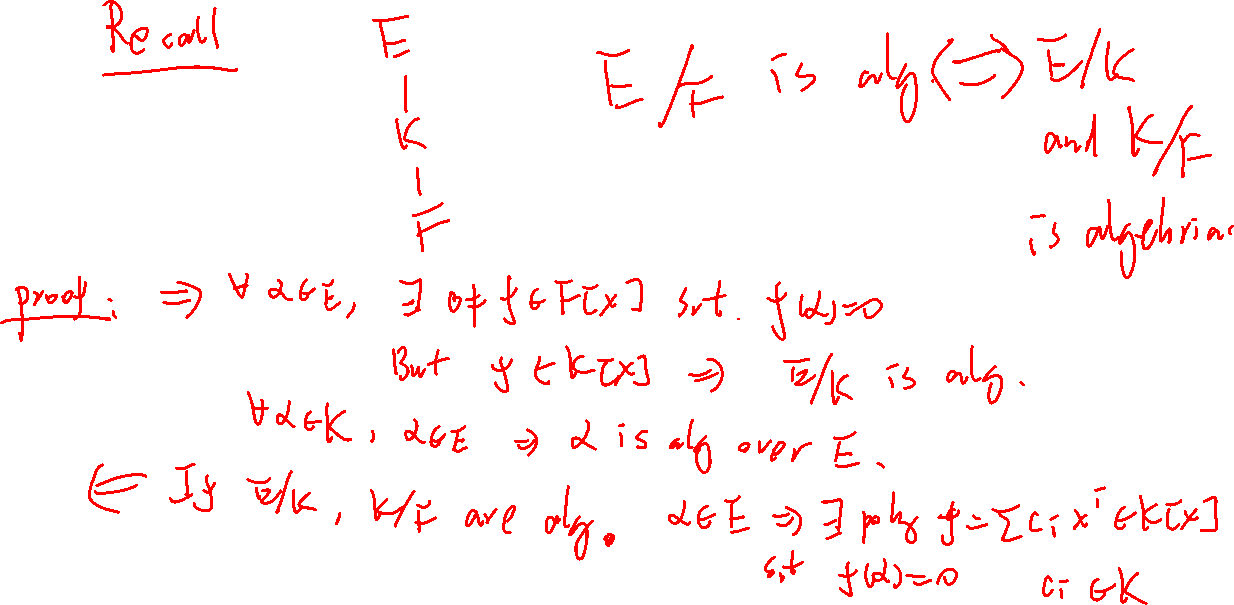 Recall
E
|
K
|
F
E/F is alg (⇔) E/K
and K/F
is algebriac
proof: ⇒ ∀ α∈E, ∃ 0≠f∈F[x] s.t. f(α)=0
But f∈K[x] ⇒ E/K is alg.
∀α∈K, α∈E ⇒ α is alg over E.
⇐ If E/K, K/F are alg. α∈E ⇒ ∃ poly f=∑cᵢxⁱ∈K[x]
s.t f(α)=0 cᵢ∈K